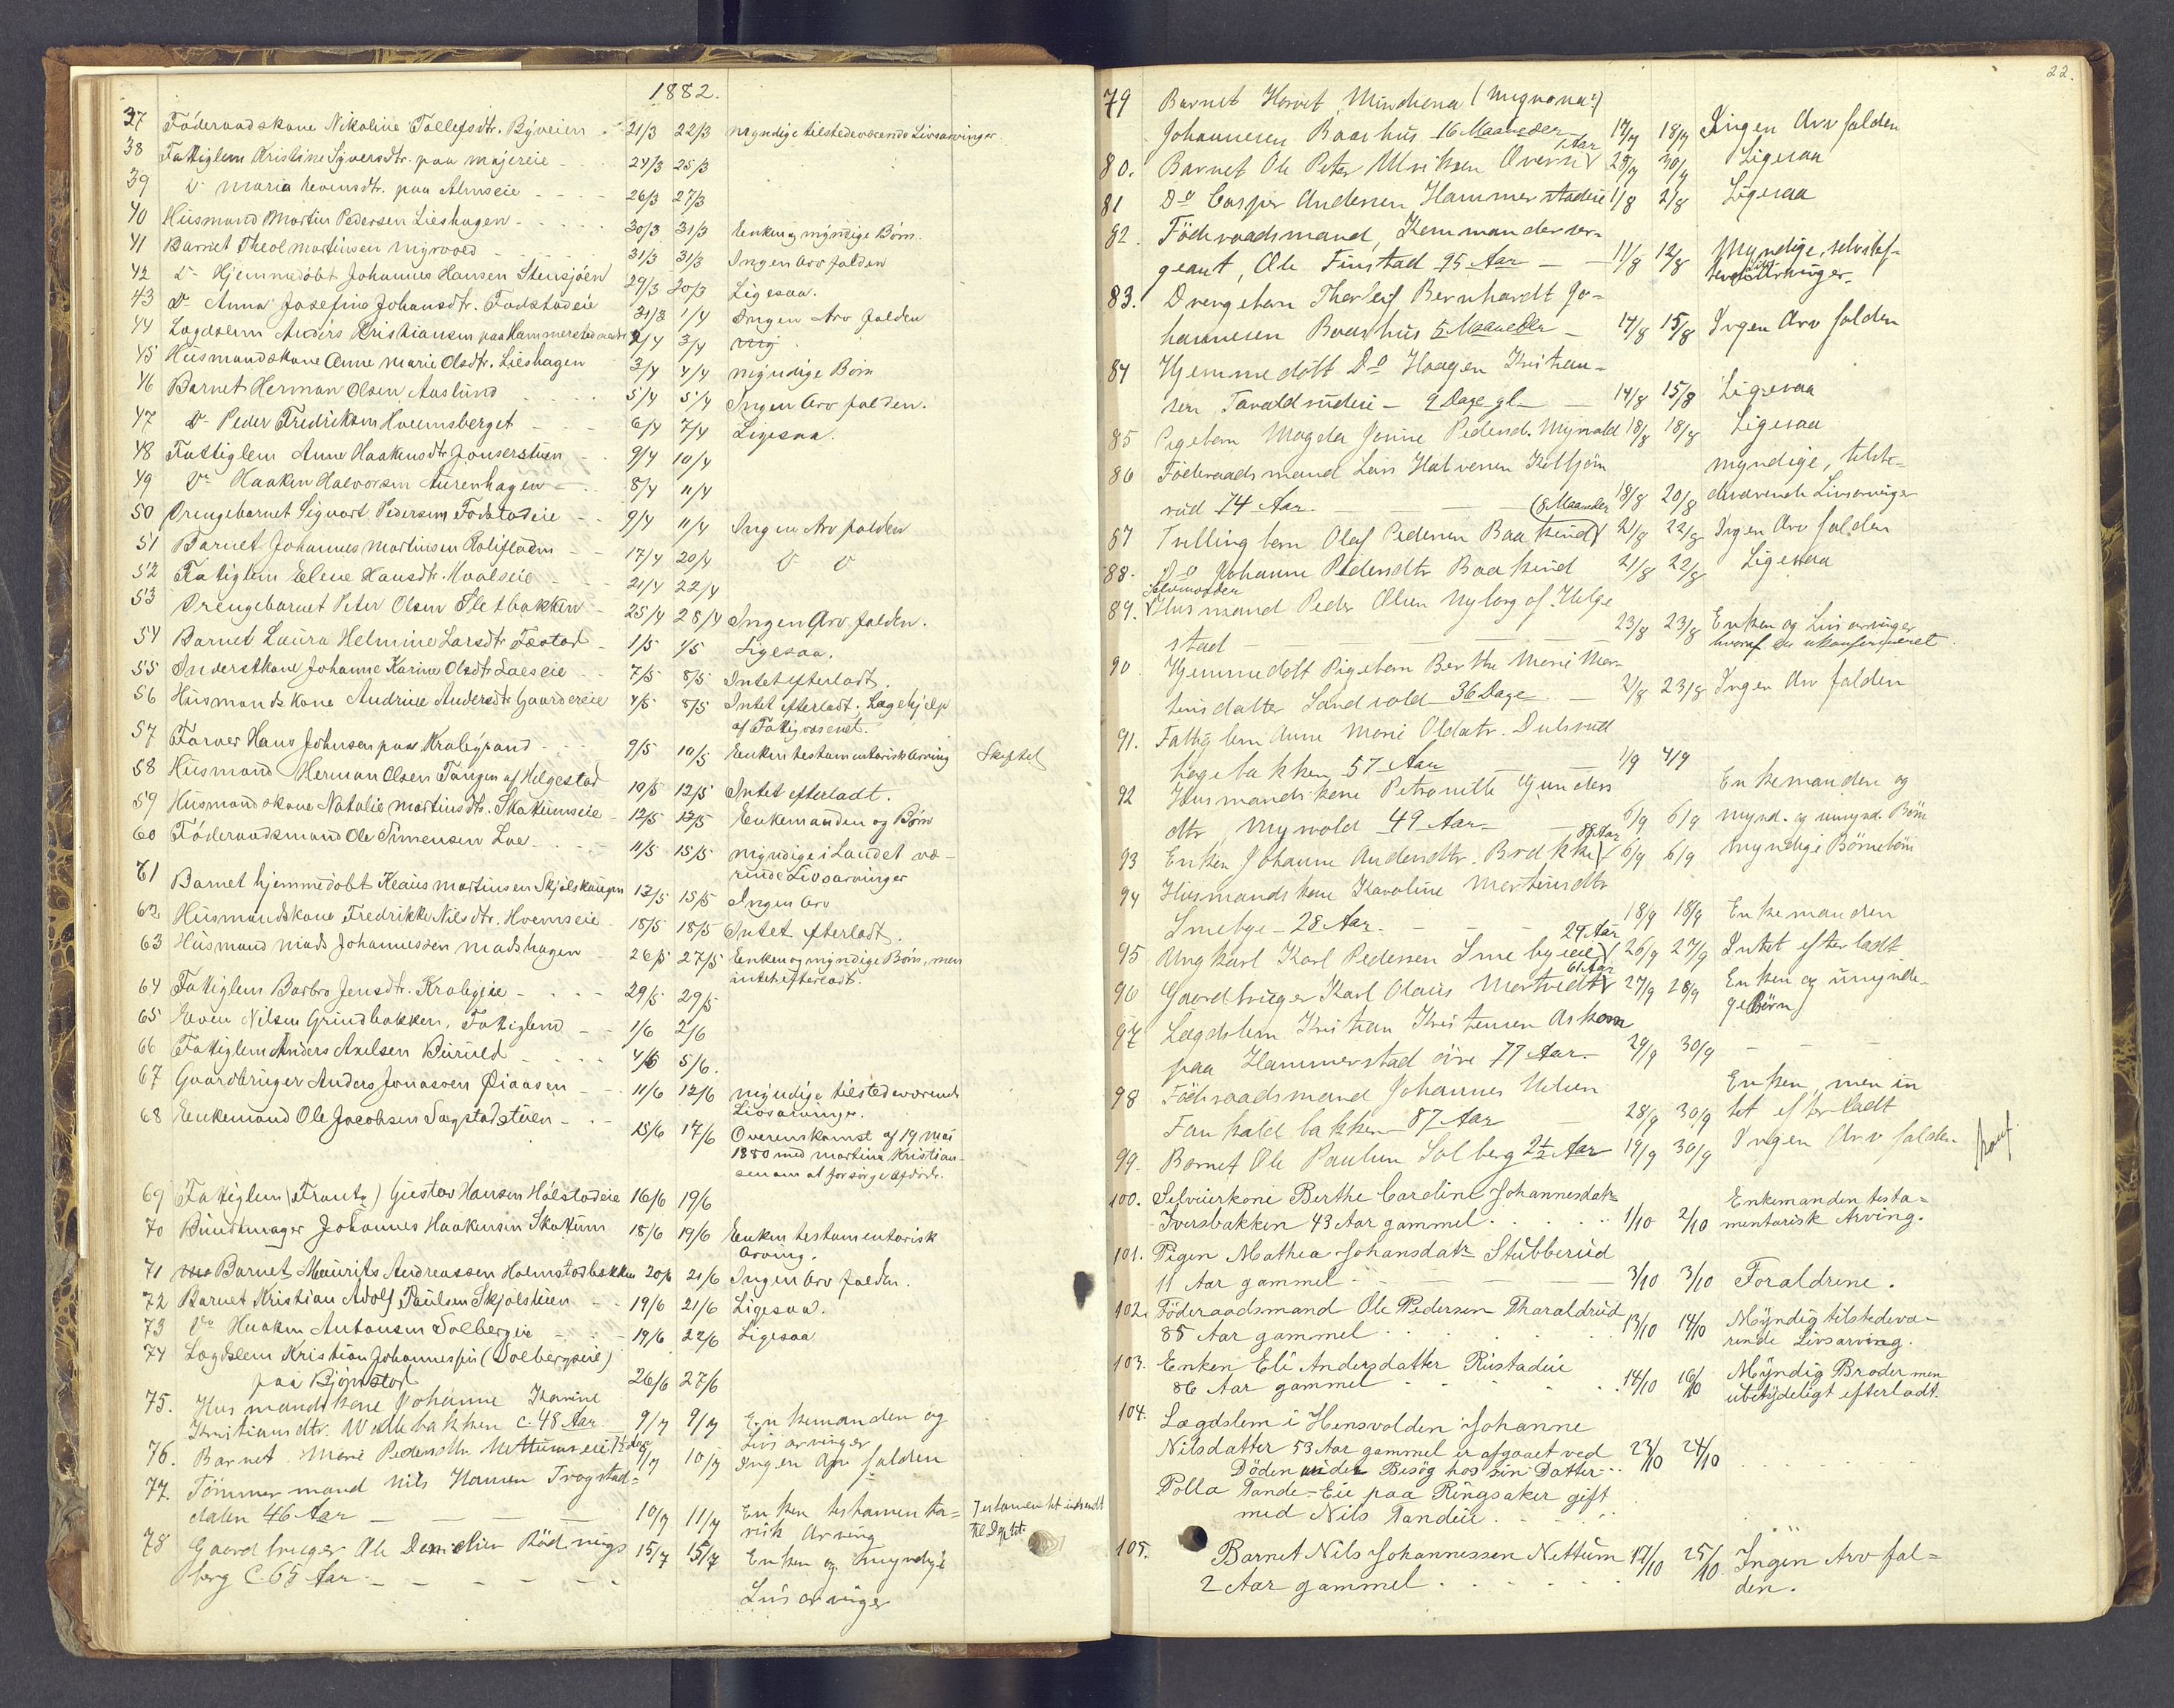 1882.
37 Föderaadskone Nikoline Tollefsdtr. Byveien 21/3 22/3 myndige tilstedeværende Livsarvinger
38 Fattiglem Kristine Syversdtr. paa majereie 24/3 25/3
39 Do Maria paa Almseie 26/3 27/3
40 Husmand Martin Pedersen Lieshagen 30/3 31/3 Enken og myndige Börn.
41 Barnet Theol Martinsen Myrvold 31/3 31/3 Ingen Arv falden
42 Do Hjemmedöbt Johannes Hansen Stensjöen 29/3 30/3 Ligesaa.
43 Do Anna Josefine Johansdtr. Fodstadeie 31/3 1/4 Ingen Arv falden
44 Lægdslem Anders Kristiansen paa 2/4 3/4
45 Husmandskone Anne Marie Olsdtr. Lieshagen 3/4 4/4 myndige Börn
46 Barnet Herman Olsen Aaslund 5/4 5/4 Ingen Arv falden.
47 Do Peder Fredriksen Hvemsberget 6/4 7/4 Ligesaa.
48 Fattiglem Anne Haakensdtr. Jonserstuen 9/4 10/4
49 Do Haaken Halvorsen Aurenhagen 8/4 11/4
50 Drengebarnet Sigvart Pedersen Fodstadeie 9/4 11/4 Ingen Arv falden
51 Barnet Johannes Martinsen 17/4 20/4 D D
52 Fattiglem Elene Hansdtr. Hvalseie 21/4 22/4
53 Drengebarnet Peter Olsen Sletbakken 25/4 28/4 Ingen Arv falden.
54 Barnet Laura Helmine Larsdtr. Fæstad 1/5 1/5 Ligesaa.
55 Inderstkone Johanne Karine Olsdtr. Loeseie 7/5 8/5 Intet efterladt.
56 Husmandskone Andrine Andersdtr. Gaardereie 4/5 8/5 Intet efterladt. Lægehjelp
af Fattigvæsenet.
57 Farver Hans Johnsen paa Krabypand 9/5 10/5 Enken testamentarisk Arving Skiftet
58 Husmand Herman Olsen Tangen af Helgestad 10/5 12/5 Intet efterladt.
59 Husmandskone Natalie Martinsdtr. Skattumseie 12/5 13/5 Enkemanden og Börn
60 Föderaadsmand Ole Simensen Loe 11/5 15/5 myndige i Landet væ-
rende Livsarvinger
61 Barnet hjemmedöbt Klaus Martinsen Skjölshaugen 13/5 15/5 Ingen Arv
62 Husmandskone Fredrikke Nilsdtr. Hvemseie 15/5 18/5 Intet efterladt.
63 Husmand Mads Johannessen Madshagen 26/5 27/5 Enken og myndige Börn, men
intet efterladt.
64 Fattiglem Barbro Jensdtr. Krabyeie 29/5 29/5
65 Even Nilsen Grindbakken, Fattiglem 1/6 2/6
66 Fattiglem Anders Axelsen Bürud 4/6 5/6.
67 Gaardbruger Anders Jonassen Öiaasen 11/6 12/6 myndige tilstedeværende
Livsarvinger.
68 Enkemand Ole Jacobsen Sagstadstuen 15/6 17/6 Overenskomst af 19 Mai
1880 med Martine Kristian-
sen om at forsörge afdöde.
69 Fattiglem (Frantz) Gustav Hansen Hölstadeie 16/6 19/6
70 Buntmager Johannes Haakensen Skattum 18/6 19/6 Enken testamentarisk
Arving.
71 Barnet Maurits Andreassen Holmstadbakken 20/6 21/6 Ingen Arv falden.
72 Barnet Kristian Adolf Paulsen Skjölstuen 19/6 21/6 Ligesaa.
73 Do Haaken Antonsen Solbergeie 19/6 22/6 Ligesaa
74 Lægdslem Kristian Johannessen (Solbergseie)
paa Björnstad 26/6 27/6
75. Husmandskone Johanne Karine
Kristiansdtr. Wedlebakken c. 48 Aar. 9/7 9/7 Enkemanden og
Livsarvinger
76. Barnet Marie Pedersdtr. Nettumseie 9/7 10/7 Ingen Arv falden
77. Tömmermand Nils Hansen Trogstad-
dalen 46 Aar 10/7 11/7 Enken testamenta-
risk Arving Testamentet indsendt
til Dept.
78 Gaardbruger Ole Danielsen Rödnings
berg C. 65 Aar 15/7 15/7 Enken og myndige
Livsarvinger
22.
79 Barnet Horvit Mindiena (Mignona?)
Johannesen Baashus 16 Maaneder 17/7 18/7 Ingen Arv falden
80. Barnet Ole Peter Ulriksen Överud Aar 29/7 30/7 Ligesaa
81 Do Casper Andersen Hammerstadeie 1/8 2/8 Ligesaa
82. Föderaadsmand, Kommandersær-
geant, Ole Finstad 95 Aar 11/8 12/8 Myndige, tilstede-
Livsarvinger.
83. Drengebarn Thorleif Bernhardt Jo-
hannesen Baashus 5 Maaneder 14/8 15/8 Ingen Arv falden
84 Hjemmedöbt Do Haagen Kristian-
sen Taraldrudeie 9 Dage gl. 14/8 15/8 Ligesaa
85 Pigebarn Magda Jonine Pedersd. Myrvold 18/8 18/8 Ligesaa
86 Föderaadsmand Lars Halvorsen Kolbjörn
rud 74 Aar. 18/8 20/8 myndige, tilste-
deværende Livsarvinger
87 Tvillingbarn Olaf Pedersen Baakind (8 Maaneder 21/8 22/8 Ingen Arv falden
88. Do Johanne Pedersdtr Baakind 21/8 22/8 Ligesaa
89. Selvmorder Husmand Peder Olsen Nyborg af Helge
stad 23/8 23/8 Enken og Livsarvinger
hvoraf en ukonfirmeret.
90. Hjemmedöbt Pigebarn Berthe Marie Mar-
tinsdatter Sandvold 36 Dage 2/8 23/8 Ingen Arv falden
91. Fattiglem Anne Marie Olsdatr. Dulsrud
hagebakken 57 Aar 1/9 4/9
92 Husmandskone Petronille Gunders
dtr. Myrvold 49 Aar 6/9 6/9 Enkemanden og
mynd. og umynd. Börn
93 Enken Johanne Andersdtr. Brække 88 Aar 6/9 6/9 Myndige Börnebörn
94 Husmandskone Karoline Martinsdtr
Smebye 28 Aar. 18/9 18/9 Enkemanden
95 Ungkarl Karl Pedersen Smebyeie 29 Aar 26/9 27/9 Intet efterladt
96 Gaardbruger Karl Olaus Mortvedt 61 Aar 27/9 28/9 Enken og umyndi-
ge Börn
97 Lægdslem Kristian Kristensen Askom
paa Hammerstad övre 77 Aar. 29/9 30/9
98 Föderaadsmand Johannes Nilsen
Faukaldbakken 87 Aar 28/9 30/9 Enken, men in
tet efterladt
99. Barnet Ole Paulsen Solberg 2½ Aar 19/9 30/9 Ingen Arv falden
100. Selveierkone Berthe Caroline Johannesdatr
Iversbakken 43 Aar gammel 1/10 2/10 Enkemanden testa-
mentarisk Arving.
101. Pigen Mathea Johansdatr Stubberud
11 Aar gammel 3/10 3/10 Foraldrene.
102. Föderaadsmand Ole Pedersen Tharaldrud
85 Aar gammel 13/10 14/10 Myndig tilstedevæ-
rende Livsarving.
103. Enken Eli Andersdatter Rustadeie
86 Aar gammel 14/10 16/10 Myndig Broder men
ubetydeligt efterladt.
104. Lægdslem i Hensvolden Johanne
Nilsdatter 53 Aar gammel er afgaaet ved
Döden under Besög hos sin Datter 23/10 24/10
Polla Tande-Eie paa Ringsaker gift
med Nils Tandeie.
105. Barnet Nils Johannessen Nettum 17/10 25/10 Ingen Arv fal-
2 Aar gammel den.